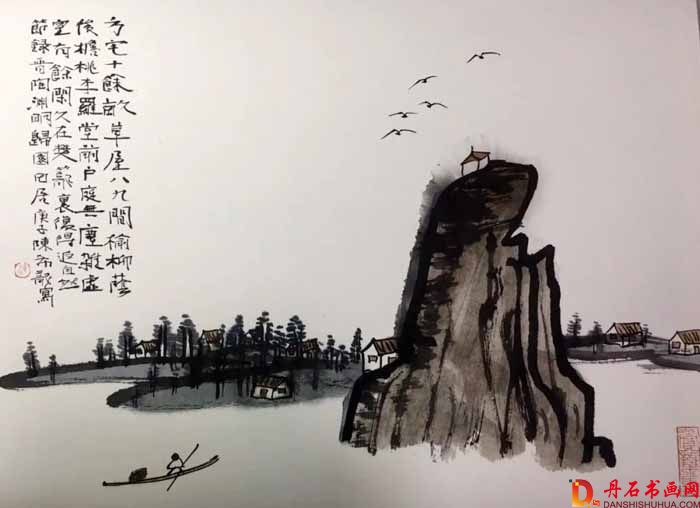 方宅十餘畝草屋八九間榆柳蔭
後檐桃李羅堂前户庭無塵雜虛
室有餘閑久在樊籠裏復得返自然
節録晉陶淵明歸園田居庚子陳寫
丹石书画网
DANSHISHUHUA.COM